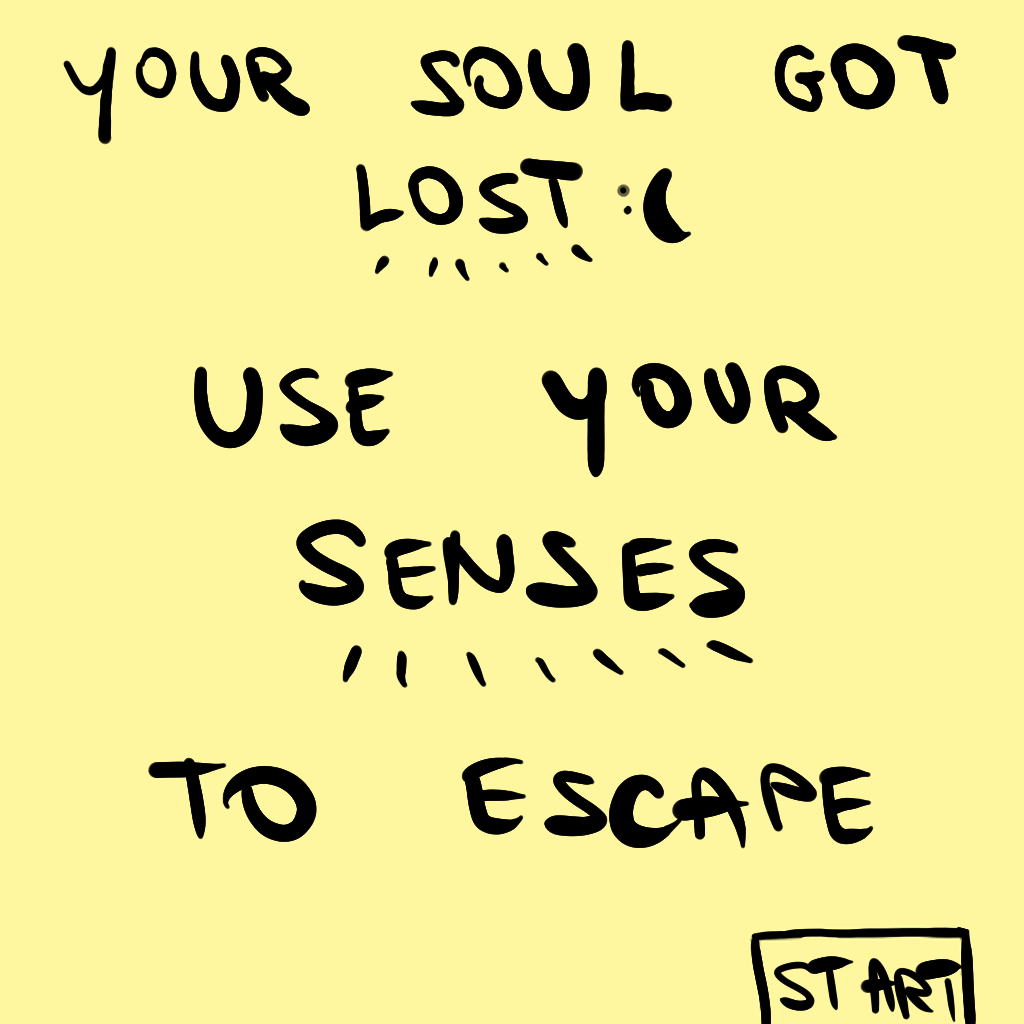 YOUR SOUL GOT
LOST :(
USE YOUR
SENSES
TO ESCAPE
START